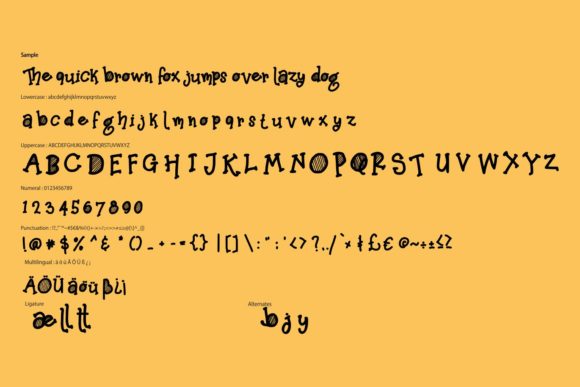 Sample
The quick brown fox jumps over lazy dog
Lowercase : abcdefghijklmnopqrstuvwxyz
a b c d e f g h i j k l m n o p q r s t u v w x y z
Uppercase : ABCDEFGHIJKLMNOPQRSTUVWXYZ
A B C D E F G H I J K L M N O P Q R S T U V W X Y Z
Numeral : 0123456789
1 2 3 4 5 6 7 8 9 0
Punctuation :
! @ # $ % ^ & * ( ) _ + - = { } | [ ] \ : " ; ' < > ? , . / ` × ¢ £ € © ~ ÷ ± ≤ ≥
Multilingual : ä ö ü Ä Ö Ü ß ¿ ¡
ÄÖÜäöüß¿¡
Ligature
æ ll tt
Alternates
b j y